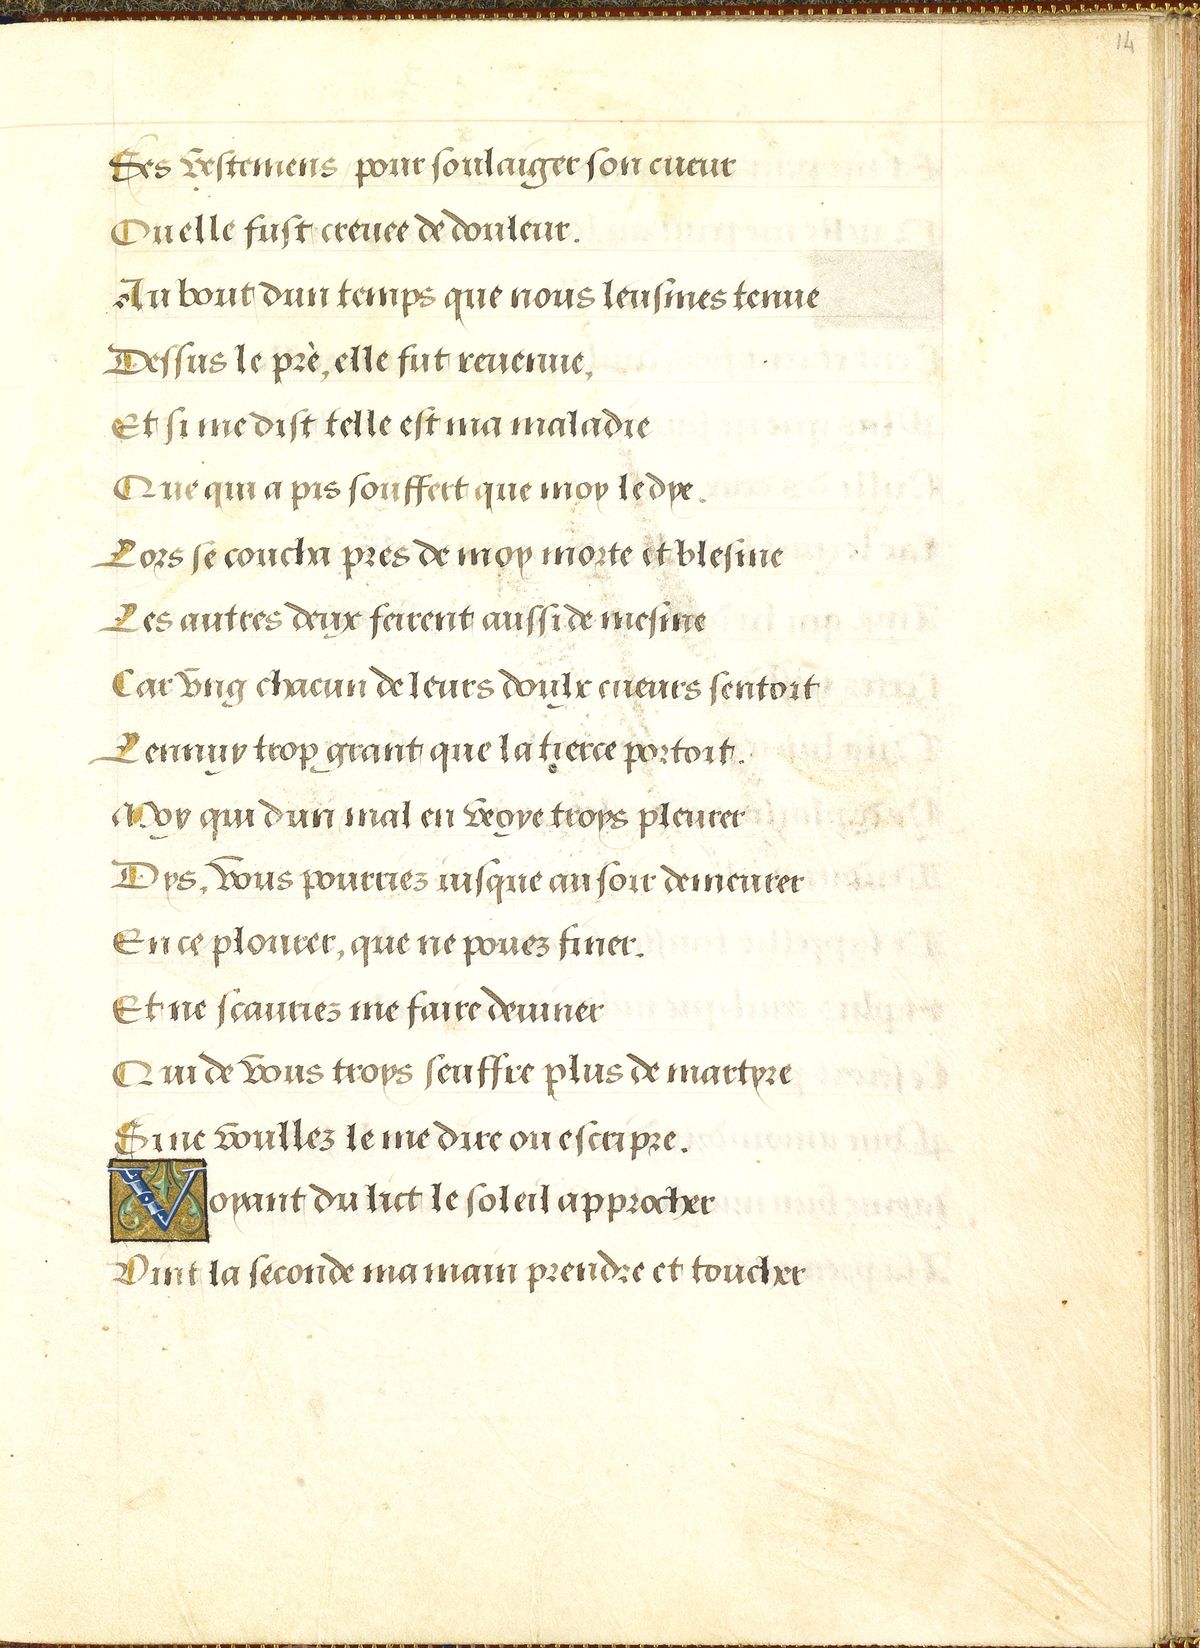 14
Ses vestemens pour soulaiger son cueur
Ou elle fust creuee de douleur.
Au bout dun temps que nous leusmes tenue
Dessus le prè, elle fut reuenue,
Et si me dist telle est ma maladie
Que qui a pis souffert que moy le dye.
Lors se coucha pres de moy morte et blesme
Les autres deux feirent aussi de mesme
Car vng chacun de leurs doulx cueurs sentoit
Lennuy trop grant que la tierce portoit.
Moy qui dun mal en veoye troys pleurer
Dys, vous pourriez iusque au soir demeurer
En ce plourer, que ne pouez finer.
Et ne scauriez me faire deuiner
Qui de vous troys seuffre plus de martyre
Si ne voullez le me dire ou escripre.
Voyant du lict le soleil approcher
Vint la seconde ma main prendre et toucher